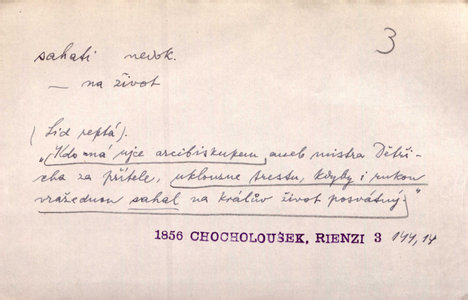 3
sahati nedok.
— na život
(Lid reptá).
"Kdo má ujce arcibiskupem aneb mistra Dětři-
cha za přítele, uklouzne trestu, kdyby i rukou
vražednou sahal na králův život posvátný."
1856 CHOCHOLOUŠEK, RIENZI 3 144,14